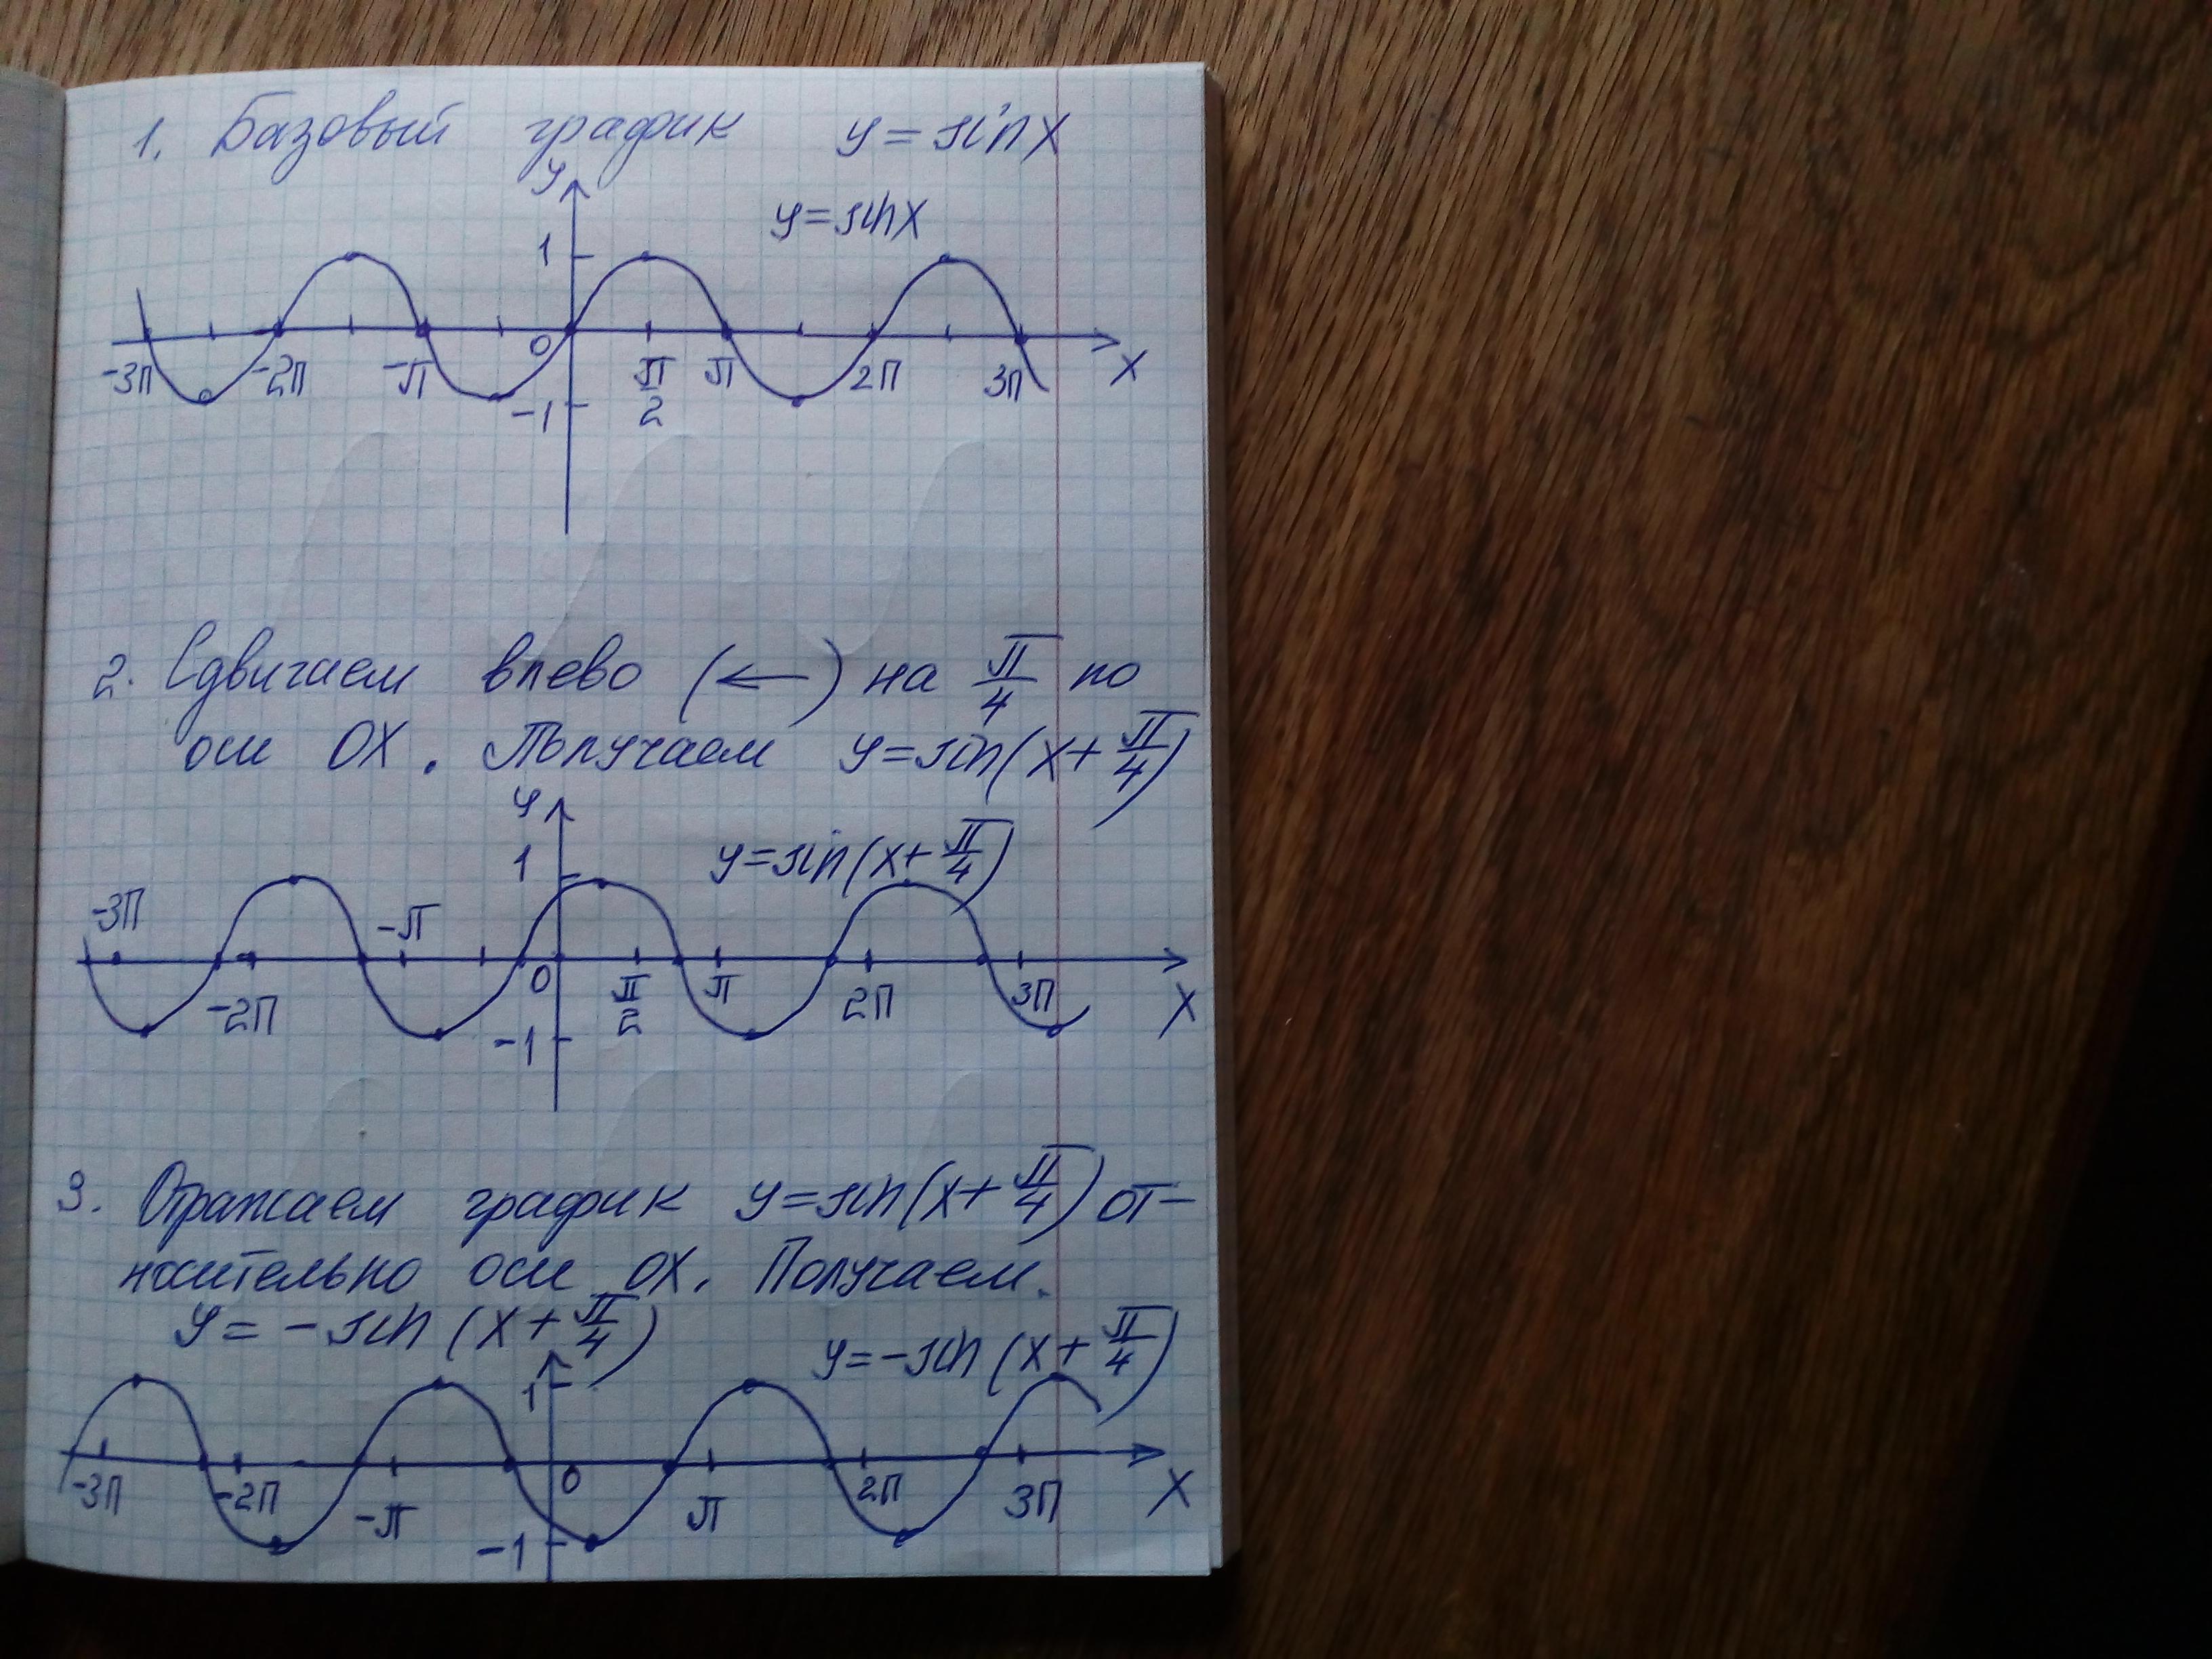 1. Базовый график y = sin x
y
y=sin x
1
0
-3π -2π -π π/2 π 2π 3π x
-1
2. Сдвигаем влево (←) на π/4 по
оси OX. Получаем y=sin(x+π/4)
y
1 y=sin(x+π/4)
-3π -π
0
-2π π/2 π 2π 3π x
-1
3. Отражаем график y=sin(x+π/4) от-
носительно оси OX. Получаем.
y= -sin (x+π/4)
y=-sin (x+π/4)
1
0
-3π -2π -π π 2π 3π x
-1